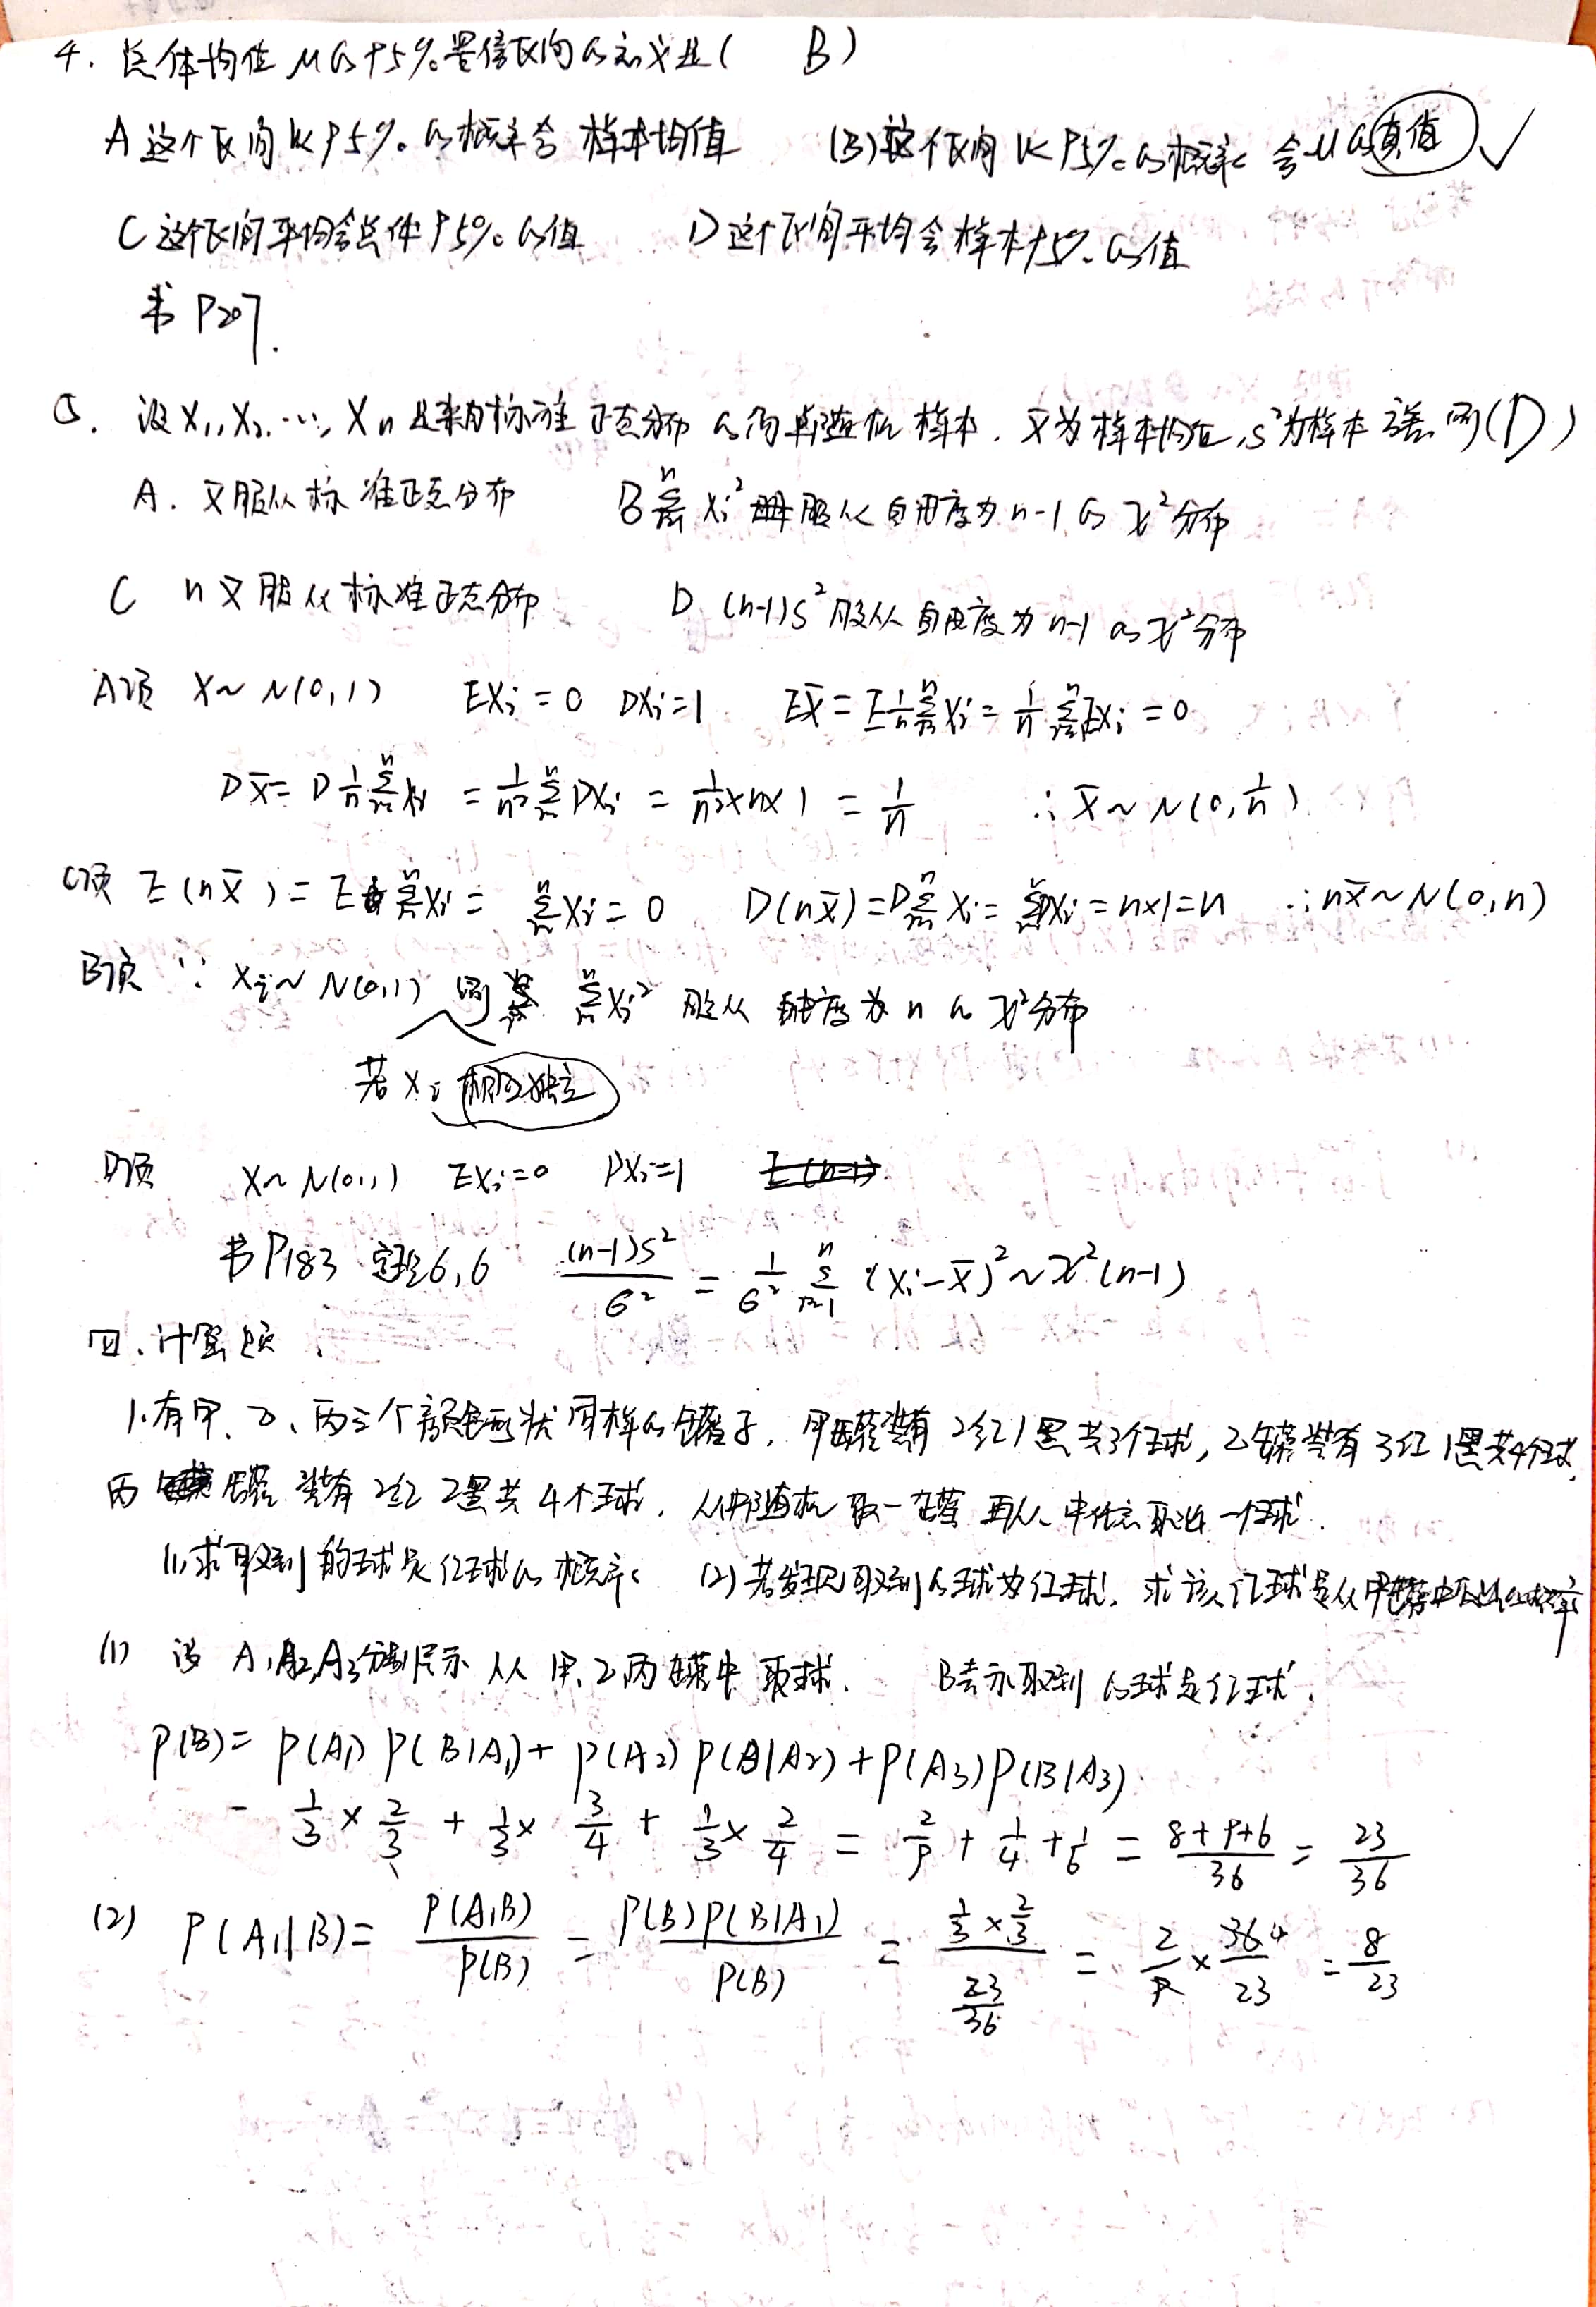 4. 总体均值 μ的95%置信区间的意义是( B )
A 这个区间以95%的概率含 样本均值 (B)这个区间 以95%的概率 含μ的真值 ✓
C 这个区间平均含总体95%的值 D 这个区间平均含样本95%的值
书 P207.
5. 设X₁,X₂,…,Xn 是来自标准正态分布 的简单随机样本. X̄为样本均值,S²为样本方差,则(D)
A. X̄服从标准正态分布 B Σⁿᵢ₌₁ Xᵢ² 服从自由度为n-1的χ²分布
C nX̄服从标准正态分布 D (n-1)S²服从自由度为n-1的χ²分布
A项 X~N(0,1) EXᵢ=0 DXᵢ=1 EX̄=E1/nΣⁿᵢ₌₁Xᵢ=1/nΣⁿᵢ₌₁EXᵢ=0
DX̄=D1/nΣⁿᵢ₌₁Xᵢ=1/n²Σⁿᵢ₌₁DXᵢ=1/n²×n×1=1/n ∴X̄~N(0,1/n)
C项 E(nX̄)=EΣⁿᵢ₌₁Xᵢ=Σⁿᵢ₌₁Xᵢ=0 D(nX̄)=DΣⁿᵢ₌₁Xᵢ=ΣⁿDXᵢ=n×1=n ∴nX̄~N(0,n)
B项 ∵Xᵢ~N(0,1) 则 Σⁿᵢ₌₁Xᵢ² 服从 自由度为n的χ²分布
若Xᵢ相互独立
D项 X~N(0,1) EXᵢ=0 DXᵢ=1
书P183 定理6.6 (n-1)S²/σ²=1/σ²Σⁿᵢ₌₁(Xᵢ-X̄)²~χ²(n-1)
四.计算题.
1.有甲、乙、丙三个颜色形状同样的罐子,甲罐装有2红1黑共3个球,乙罐装有3红1黑共4个球,
丙罐 装有2红2黑共4个球.从中随机取一罐 再从中任意取出一个球.
(1)求取到的球是红球的概率 (2)若发现取到的球为红球,求该红球是从甲罐中取出的概率
(1) 设A₁,A₂,A₃分别表示从甲,乙丙罐中取球. B表示取到的球是红球.
P(B)=P(A₁)P(B|A₁)+P(A₂)P(B|A₂)+P(A₃)P(B|A₃)
=1/3×2/3+1/3×3/4+1/3×2/4=2/9+1/4+1/6=(8+9+6)/36=23/36
(2) P(A₁|B)=P(A₁B)/P(B)=P(B)P(B|A₁)/P(B)=(1/3×2/3)/(23/36)=2/9×36⁴/23=8/23